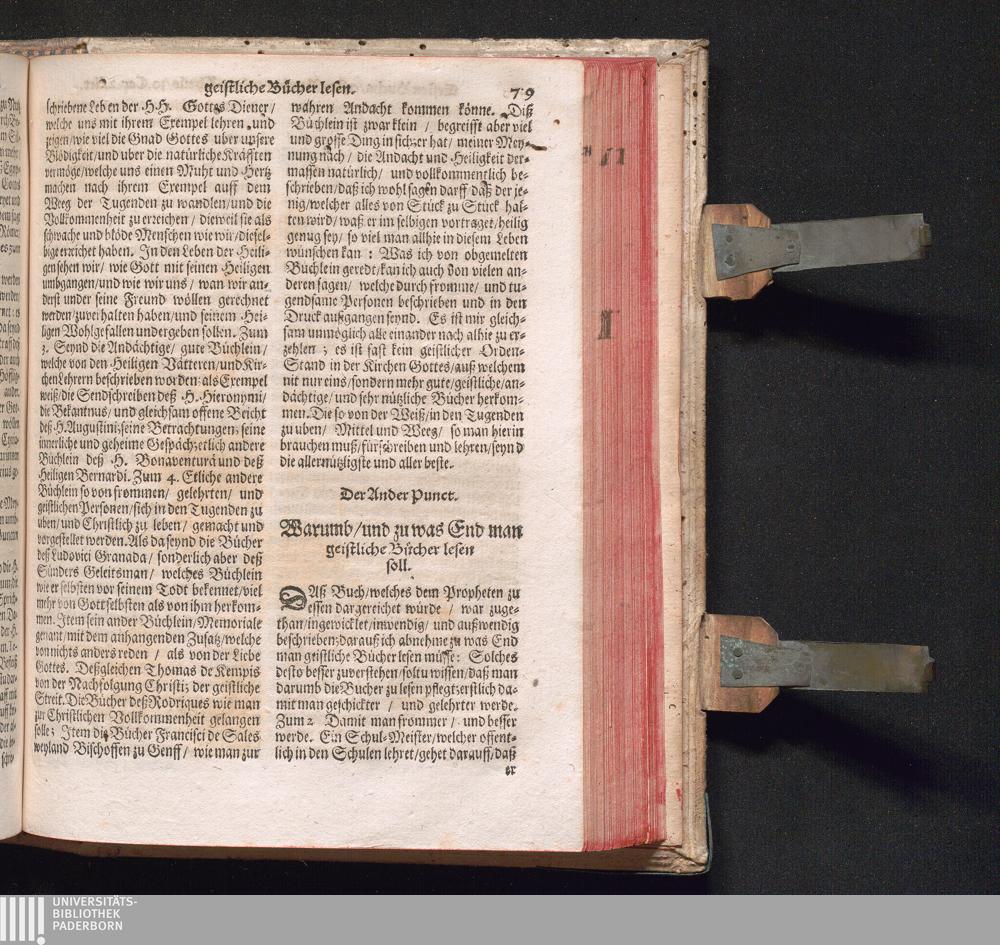 geistliche Bücher lesen. 79
schriebene Leben der H.H. Gottes Diener/
welche uns mit ihrem Exempel lehren und
zeigen/wie viel die Gnad Gottes uber unsere
Blödigkeit/und uber die natürliche Kräfften
vermöge/welche uns einen Muht und Hertz
machen nach ihrem Exempel auff dem
Weeg der Tugenden zu wandlen/und die
Vollkommenheit zu erzeichen / dieweil sie als
schwache und blöde Menschen wie wir/diesel-
bige erreichet haben. In den Leben der Heili-
gen sehen wir/ wie Gott mit seinen Heiligen
umbgangen/und wie wir uns / wan wir an-
derst under seine Freund wöllen gerechnet
werden/zuverhalten haben/und seinem Hei-
ligen Wohlgefallen undergeben sollen. Zum
3. Seynd die Andächtige/ gute Büchlein/
welche von den Heiligen Vätteren/und Kir-
chen Lehrern beschrieben worden: als Exempel
weiß/die Sendschreiben deß H. Hieronymi/
die Bekantnus/ und gleichsam offene Beicht
deß H. Augustini; seine Betrachtungen; seine
innerliche und geheime Gespäch; etlich andere
Büchlein deß H. Bonaventurä und deß
Heiligen Bernardi. Zum 4. Etliche andere
Büchlein so von frommen/ gelehrten/ und
geistlichen Personen/sich in den Tugenden zu
uben/ und Christlich zu leben/ gemacht und
vorgestellet werden. Als da seynd die Bücher
deß Ludovici Granada/ sonderlich aber deß
Sünders Geleitsman/ welches Büchlein
wie er selbsten vor seinem Todt bekennet/viel
mehr von Gott selbsten als von ihm herkom-
men. Item sein ander Büchlein/Memoriale
genant/mit dem anhangenden Zusatz/welche
von nichts anders reden / als von der Liebe
Gottes. Deßgleichen Thomas de Kempis
von der Nachfolgung Christi; der geistliche
Streit. Die Bücher deß Rodriques wie man
zur Christlichen Vollkommenheit gelangen
solle; Item die Bücher Francisci de Sales
weyland Bischoffen zu Genff/ wie man zur
wahren Andacht kommen könne. Diß
Büchlein ist zwar klein / begreifft aber viel
und grosse Ding in sich; er hat/ meiner Mey-
nung nach / die Andacht und Heiligkeit der-
massen natürlich/ und vollkommentlich be-
schrieben/daß ich wohl sagen darff daß der je-
nig/welcher alles von Stück zu Stück hal-
ten wird/waß er im selbigen vortraget/heilig
genug sey/ so viel man allhie in diesem Leben
wünschen kan : Was ich von obgemelten
Büchlein geredt/kan ich auch von vielen an-
deren sagen/ welche durch fromme/ und tu-
gendsame Personen beschrieben und in den
Druck außgangen seynd. Es ist mir gleich-
sam unmöglich alle einander nach alhie zu er-
zehlen ; es ist fast kein geistlicher Orden-
Stand in der Kirchen Gottes/auß welchem
nit nur eins/sondern mehr gute/geistliche/an-
dächtige/und sehr nützliche Bücher herkom-
men. Die so von der Weiß/in den Tugenden
zu uben/ Mittel und Weeg/ so man hierin
brauchen muß/fürschreiben und lehren/seynd
die allernützligste und aller beste.
Der Ander Punct.
Warumb/und zu was End man
geistliche Bücher lesen
soll.
DAß Buch/welches dem Propheten zu
essen dargereichet würde / war zuge-
than/ingewicklet/inwendig/ und außwendig
beschrieben; darauß ich abnehme zu was End
man geistliche Bücher lesen müsse: Solches
desto besser zuverstehen/soltu wissen/daß man
darumb die Bücher zu lesen pflegt; erstlich da-
mit man geschickter / und gelehrter werde.
Zum 2 Damit man frommer/ und besser
werde. Ein Schul-Meister/welcher offent-
lich in den Schulen lehret/gehet darauff/daß
er
UNIVERSITÄTS-
BIBLIOTHEK
PADERBORN